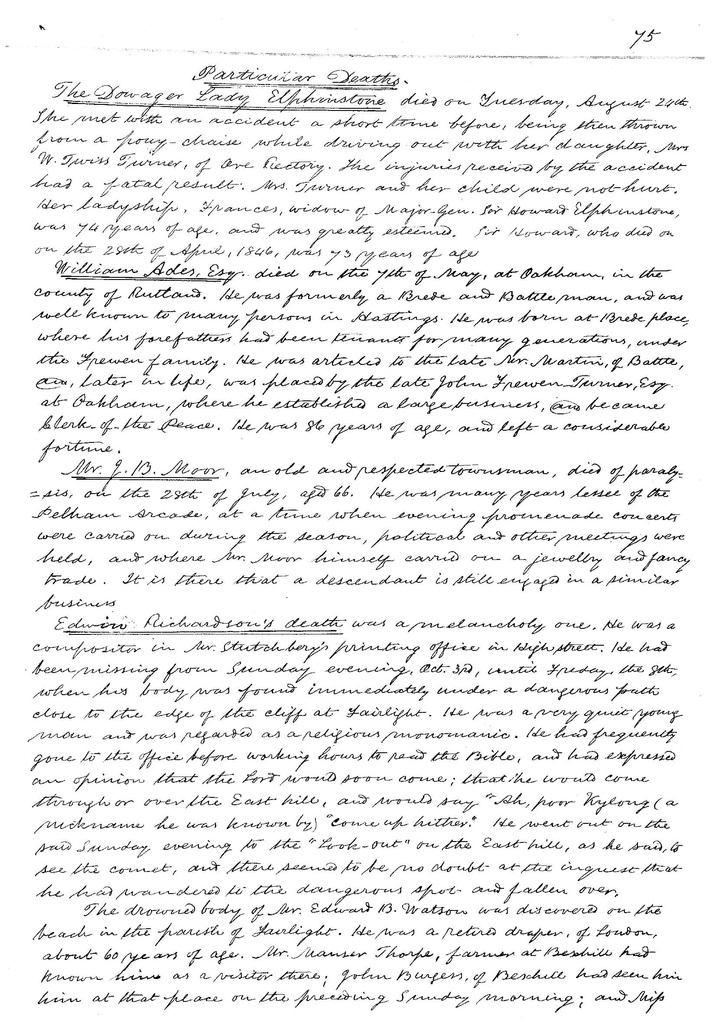 75
Particular Deaths.
The Dowager Lady Elphinstone died on Tuesday, August 24th.
She met with an accident a short time before, being then thrown
from a pony-chaise while driving out with her daughter, Mrs
W. Twiss Turner, of Ore Rectory. The injuries received by the accident
had a fatal result. Mrs. Turner and her child were not hurt.
Her ladyship, Frances, widow of Major-Gen. Sir Howard Elphinstone,
was 74 years of age, and was greatly esteemed. Sir Howard, who died on
on the 28th of April, 1846, was 73 years of age
William Ades, Esq. died on the 7th of May, at Oakham, in the
county of Rutland. He was formerly a Brede and Battle man, and was
well known to many persons in Hastings. He was born at Brede place,
where his forefathers had been tenants for many generations, under
the Frewen family. He was articled to the late Mr. Martin, of Battle,
and, later in life, was placed by the late John Frewen Turner, Esq.
at Oakham, where he established a large business, and became
Clerk-of-the Peace. He was 86 years of age, and left a considerable
fortune.
Mr. J. B. Moor, an old and respected townsman, died of paraly=
=sis, on the 28th of July, aged 66. He was many years lessee of the
Pelham Arcade, at a time when evening promenade concerts
were carried on during the season, political and other meetings were
held, and where Mr. Moor himself carried on a jewellry and fancy
trade. It is there that a descendant is still engaged in a similar
business
Edwin Richardson's death was a melancholy one. He was a
compositor in Mr. Stutchbery's printing office in High street. He had
been missing from Sunday evening, Oct. 3rd, until Friday, the 8th,
when his body was found immediately under a dangerous path
close to the edge of the cliff at Fairlight. He was a very quiet young
man and was regarded as a religious monomanic. He had frequently
gone to the office before working hours to read the Bible, and had expressed
an opinion that the Lord would soon come; that he would come
through or over the East hill, and would say "Ah, poor Kylong (a
nickname he was known by) "come up hither." He went out on the
said Sunday evening to the "Look-out" on the East hill, as he said, to
see the comet, and there seemed to be no doubt at the inquest that
he had wandered to the dangerous spot and fallen over.
The drowned body of Mr. Edward B. Watson was discovered on the
beach in the parish of Fairlight. He was a retired draper, of London,
about 60 years of age. Mr. Manser Thorpe, farmer at Bexhill had
known him as a visitor there; John Burgess, of Bexhill had seen him
him at that place on the preceding Sunday morning; and Miss